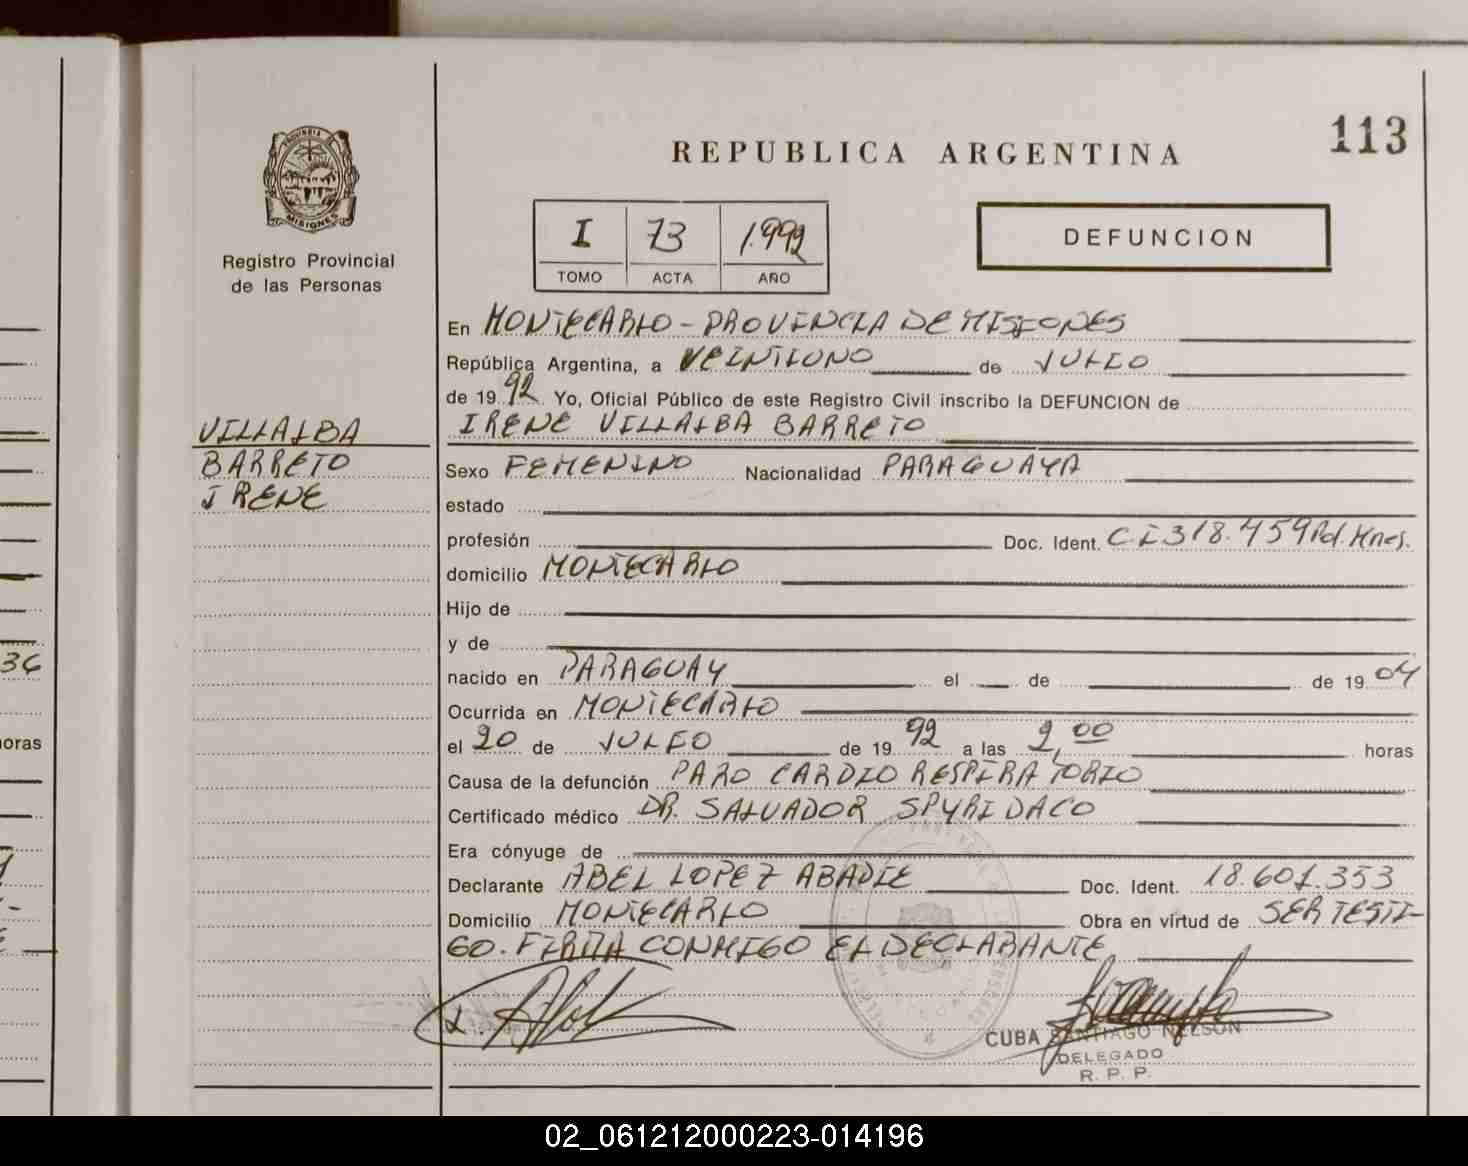 113
REPUBLICA ARGENTINA
MISIONES
Registro Provincial
de las Personas
I 73 1.992
TOMO ACTA AÑO
DEFUNCION
En MONTECARLO - PROVINCIA DE MISIONES
República Argentina, a VEINTIUNO de JULIO
de 19 92 Yo, Oficial Público de este Registro Civil inscribo la DEFUNCION de
IRENE VILLALBA BARRETO
VILLALBA
BARRETO
IRENE
Sexo FEMENINO Nacionalidad PARAGUAYA
estado
profesión Doc. Ident. C.I 318.459 Pol. Mnes.
domicilio MONTECARLO
Hijo de
y de
nacido en PARAGUAY el de de 19 04
Ocurrida en MONTECARLO
el 20 de JULIO de 19 92 a las 2,00 horas
Causa de la defunción PARO CARDIO RESPIRATORIO
Certificado médico DR. SALVADOR SPYRIDACO
Era cónyuge de
Declarante ABEL LOPEZ ABADIE Doc. Ident. 18.601.353
Domicilio MONTECARLO Obra en virtud de SER TESTI-
GO. FIRMA CONMIGO EL DECLARANTE
CUBA SANTIAGO NELSON
DELEGADO
R. P. P.
36
horas
02_061212000223-014196